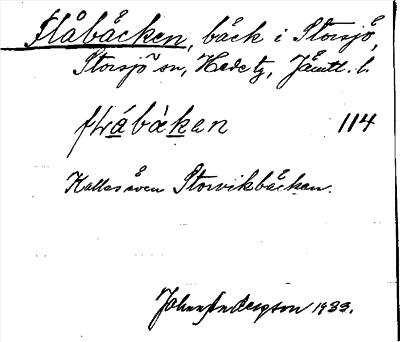 Flåbäcken, bäck i Storsjö,
Storsjö sn, Hede tg, Jämtl. l.
flåbäkan 114
Kallas även Storvikbäcken.
John Andersson 1933.